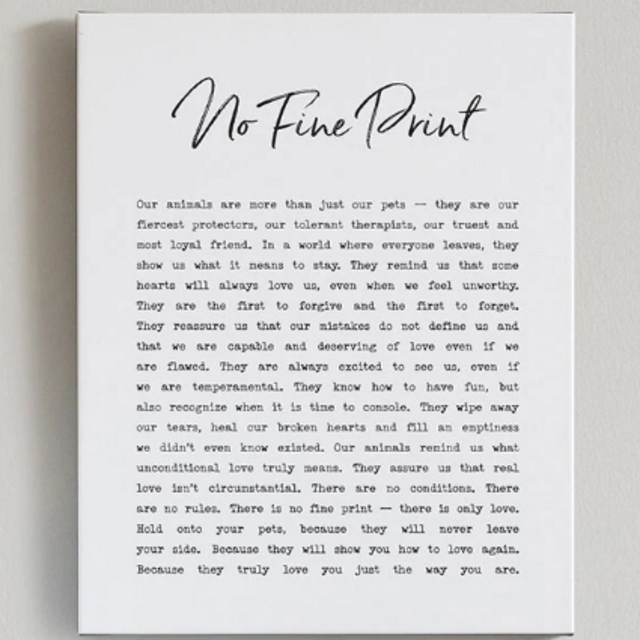 No Fine Print
Our animals are more than just our pets — they are our
fiercest protectors, our tolerant therapists, our truest and
most loyal friend. In a world where everyone leaves, they
show us what it means to stay. They remind us that some
hearts will always love us, even when we feel unworthy.
They are the first to forgive and the first to forget.
They reassure us that our mistakes do not define us and
that we are capable and deserving of love even if we
are flawed. They are always excited to see us, even if
we are temperamental. They know how to have fun, but
also recognize when it is time to console. They wipe away
our tears, heal our broken hearts and fill an emptiness
we didn't even know existed. Our animals remind us what
unconditional love truly means. They assure us that real
love isn't circumstantial. There are no conditions. There
are no rules. There is no fine print — there is only love.
Hold onto your pets, because they will never leave
your side. Because they will show you how to love again.
Because they truly love you just the way you are.